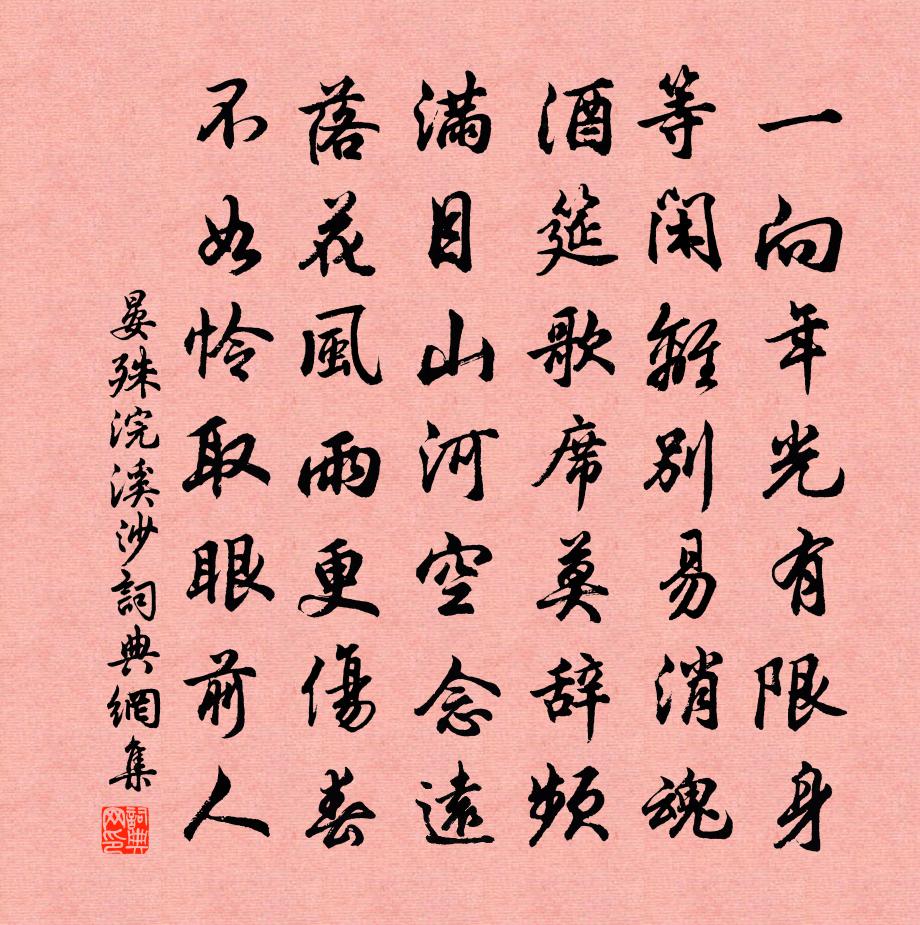 一向年光有限身
等閑離別易消魂
酒筵歌席莫辞頻
滿目山河空念遠
落花風雨更傷春
不如怜取眼前人
晏殊浣溪沙詞典網集
詞典
网印